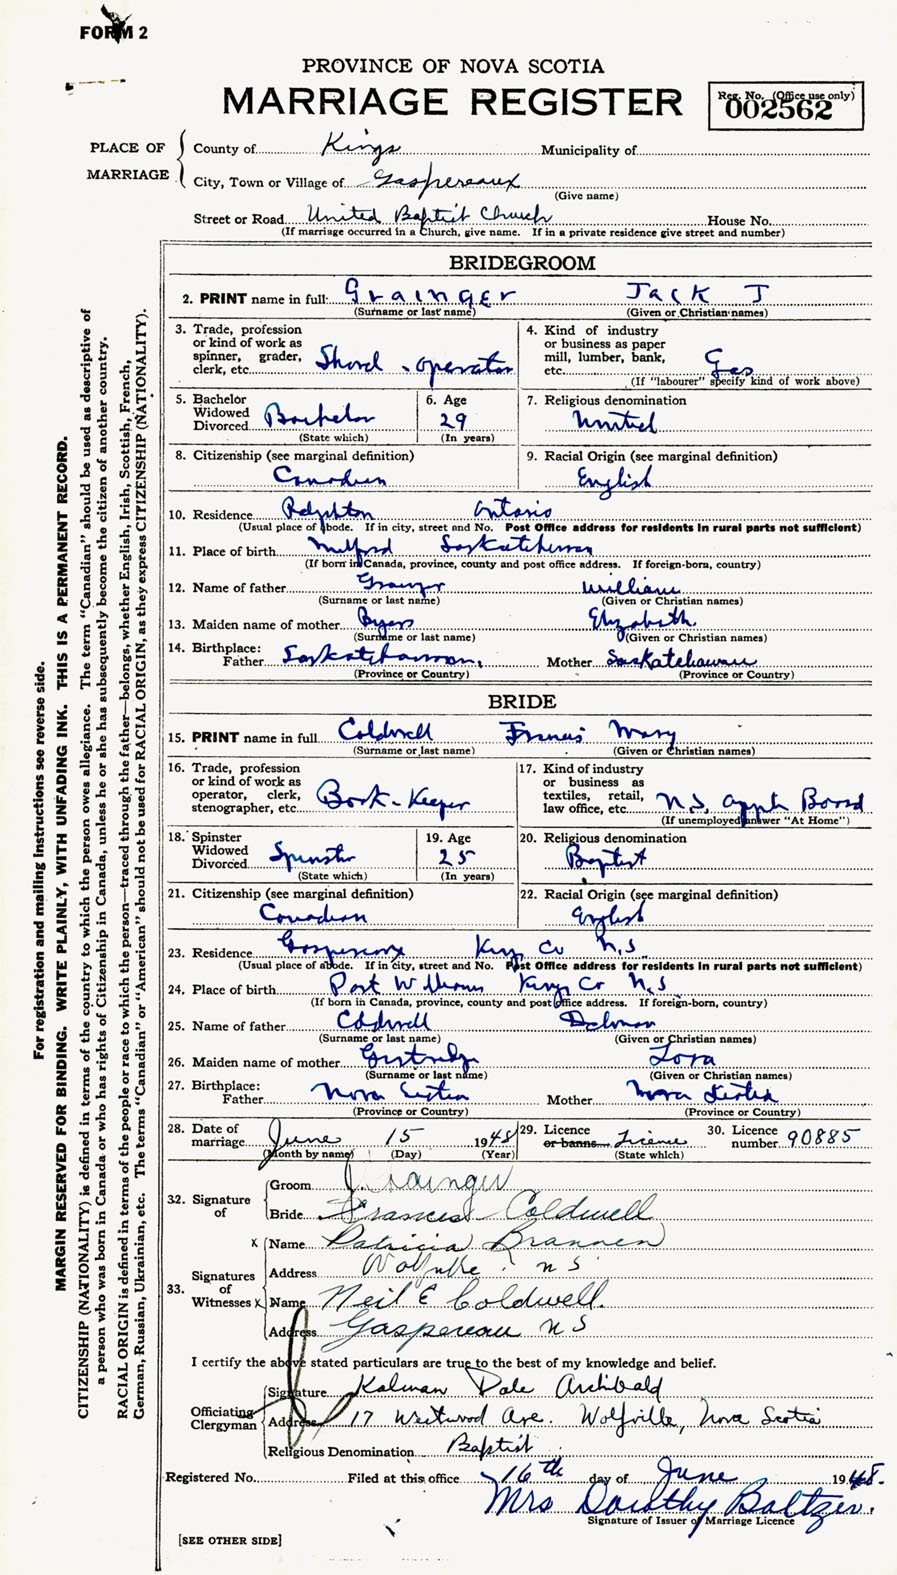 FORM 2
PROVINCE OF NOVA SCOTIA
MARRIAGE REGISTER
Reg. No. (Office use only)
002562
PLACE OF MARRIAGE
County of Kings Municipality of
City, Town or Village of Gaspereaux
(Give name)
Street or Road United Baptist Church House No.
(If marriage occurred in a Church, give name. If in a private residence give street and number)
BRIDEGROOM
2. PRINT name in full: Grainger Jack J
(Surname or last name) (Given or Christian names)
3. Trade, profession or kind of work as spinner, grader, clerk, etc. Shovel - operator
4. Kind of industry or business as paper mill, lumber, bank, etc. Gas
(If "labourer" specify kind of work above)
5. Bachelor Widowed Divorced Bachelor
(State which)
6. Age 29
(In years)
7. Religious denomination United
8. Citizenship (see marginal definition) Canadian
9. Racial Origin (see marginal definition) English
10. Residence Ontario
(Usual place of abode. If in city, street and No. Post Office address for residents in rural parts not sufficient)
11. Place of birth Milford Saskatchewan
(If born in Canada, province, county and post office address. If foreign-born, country)
12. Name of father Grainger William
(Surname or last name) (Given or Christian names)
13. Maiden name of mother Byers Elizabeth
(Surname or last name) (Given or Christian names)
14. Birthplace: Father Saskatchewan, Mother Saskatchewan
(Province or Country) (Province or Country)
BRIDE
15. PRINT name in full Coldwell Francis Mary
(Surname or last name) (Given or Christian names)
16. Trade, profession or kind of work as operator, clerk, stenographer, etc. Book-Keeper
17. Kind of industry or business as textiles, retail, law office, etc. N.S. Apple Board
(If unemployed answer "At Home")
18. Spinster Widowed Divorced Spinster
(State which)
19. Age 25
(In years)
20. Religious denomination Baptist
21. Citizenship (see marginal definition) Canadian
22. Racial Origin (see marginal definition) English
23. Residence Gaspereaux Kings Co N.S
(Usual place of abode. If in city, street and No. Post Office address for residents in rural parts not sufficient)
24. Place of birth Port Williams Kings Co N.S
(If born in Canada, province, county and post office address. If foreign-born, country)
25. Name of father Coldwell Delman
(Surname or last name) (Given or Christian names)
26. Maiden name of mother Gertridge Lora
(Surname or last name) (Given or Christian names)
27. Birthplace: Father Nova Scotia Mother Nova Scotia
(Province or Country) (Province or Country)
28. Date of marriage June 15 1948
(Month by name) (Day) (Year)
29. Licence or banns Licence
(State which)
30. Licence number 90885
32. Signature of
Groom J Grainger
Bride Frances Coldwell
33. Signatures of Witnesses
x Name Patricia Brannen
Address Wolfville N S
x Name Neil E Coldwell.
Address Gaspereau N S
I certify the above stated particulars are true to the best of my knowledge and belief.
Officiating Clergyman
Signature Kalman Dale Archibald
Address 17 Westwood Ave. Wolfville, Nova Scotia
Religious Denomination Baptist
Registered No. Filed at this office 16th day of June 1948.
Mrs Dorothy Baltzer.
Signature of Issuer of Marriage Licence
[SEE OTHER SIDE]
For registration and mailing instructions see reverse side.
MARGIN RESERVED FOR BINDING. WRITE PLAINLY, WITH UNFADING INK. THIS IS A PERMANENT RECORD.
CITIZENSHIP (NATIONALITY) is defined in terms of the country to which the person owes allegiance. The term "Canadian" should be used as descriptive of
a person who was born in Canada or who has rights of Citizenship in Canada, unless he or she has subsequently become the citizen of another country.
RACIAL ORIGIN is defined in terms of the people or race to which the person—traced through the father—belongs, whether English, Irish, Scottish, French,
German, Russian, Ukrainian, etc. The terms "Canadian" or "American" should not be used for RACIAL ORIGIN, as they express CITIZENSHIP (NATIONALITY).